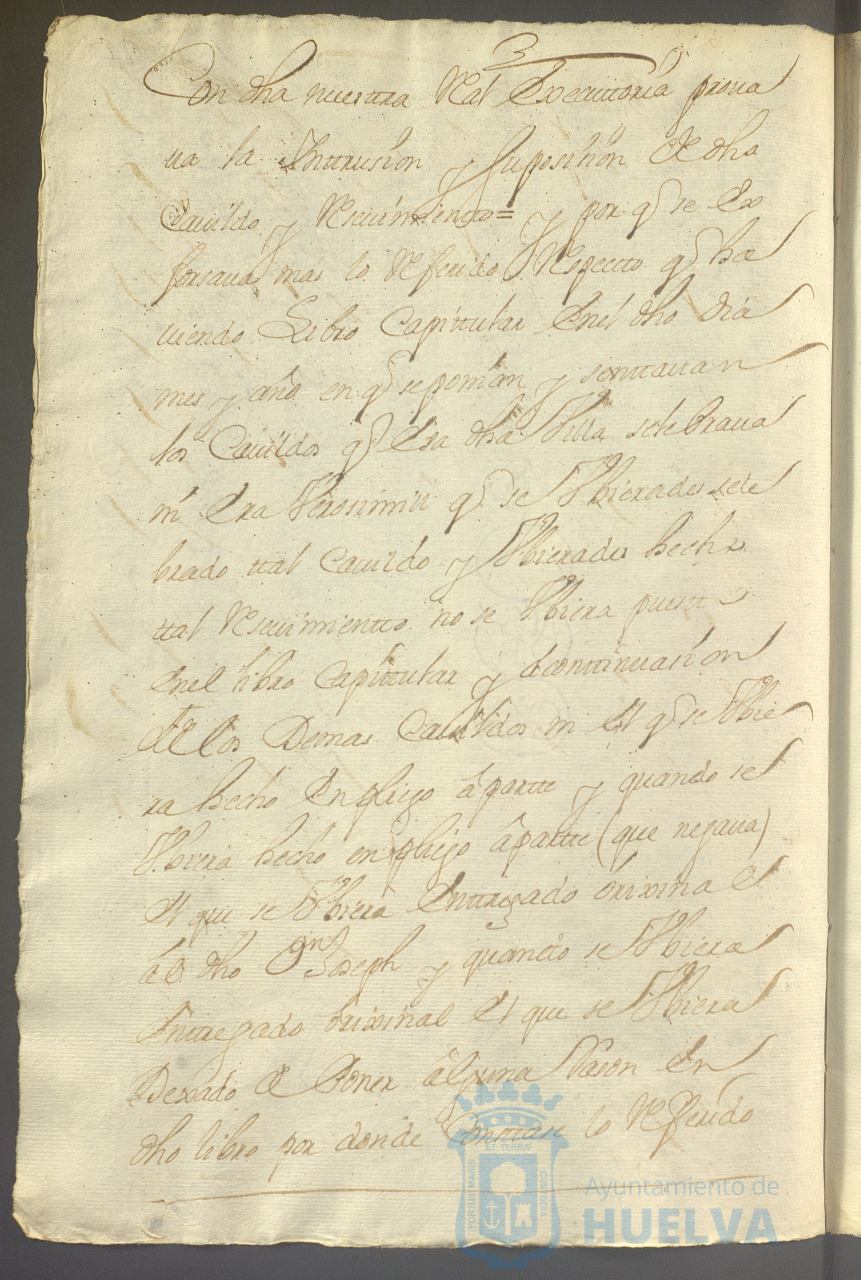 Con dha nuestra Real Executtoria prova
va la Inttrusion y suposision de dho
Cavildo y Resevimiento= y por q se es
forsava mas lo Referido Respecto q ha
viendo Libro Capittular en el dho dia
mes y año en q se ponian y senttavan
los Cavildos q esa dha Villa selebrava
ni era Verosimil q se Vbierades sele
brado ttal Cavildo y Vbierades hecho
ttal Resevimientto no se Vbiera puestto
en el libro Capittular y acontinuasion
de los Demas Cavildos ni el q se Vbie
ra hecho en pliego â partte y quando se
Vbiera hecho en pliego âpartte (que negava)
el que se Vbiera enttregado orixinal
âl dho Dn Joseph y quando se Vbiera
enttregado orixinal el que se Vbiera
Dexado de Poner âlguna Rason en
dho libro por donde Constase lo Referido
PORTUS MARIS
ET TERRAE
Ayuntamiento de
HUELVA